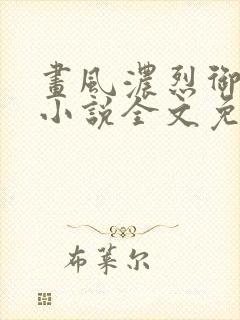 畫風濃烈御
小說全文免
布莱尔